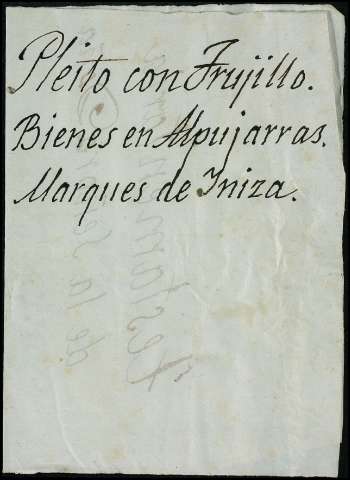 Pleito con Trujillo.
Bienes en Alpujarras.
Marques de Iniza.